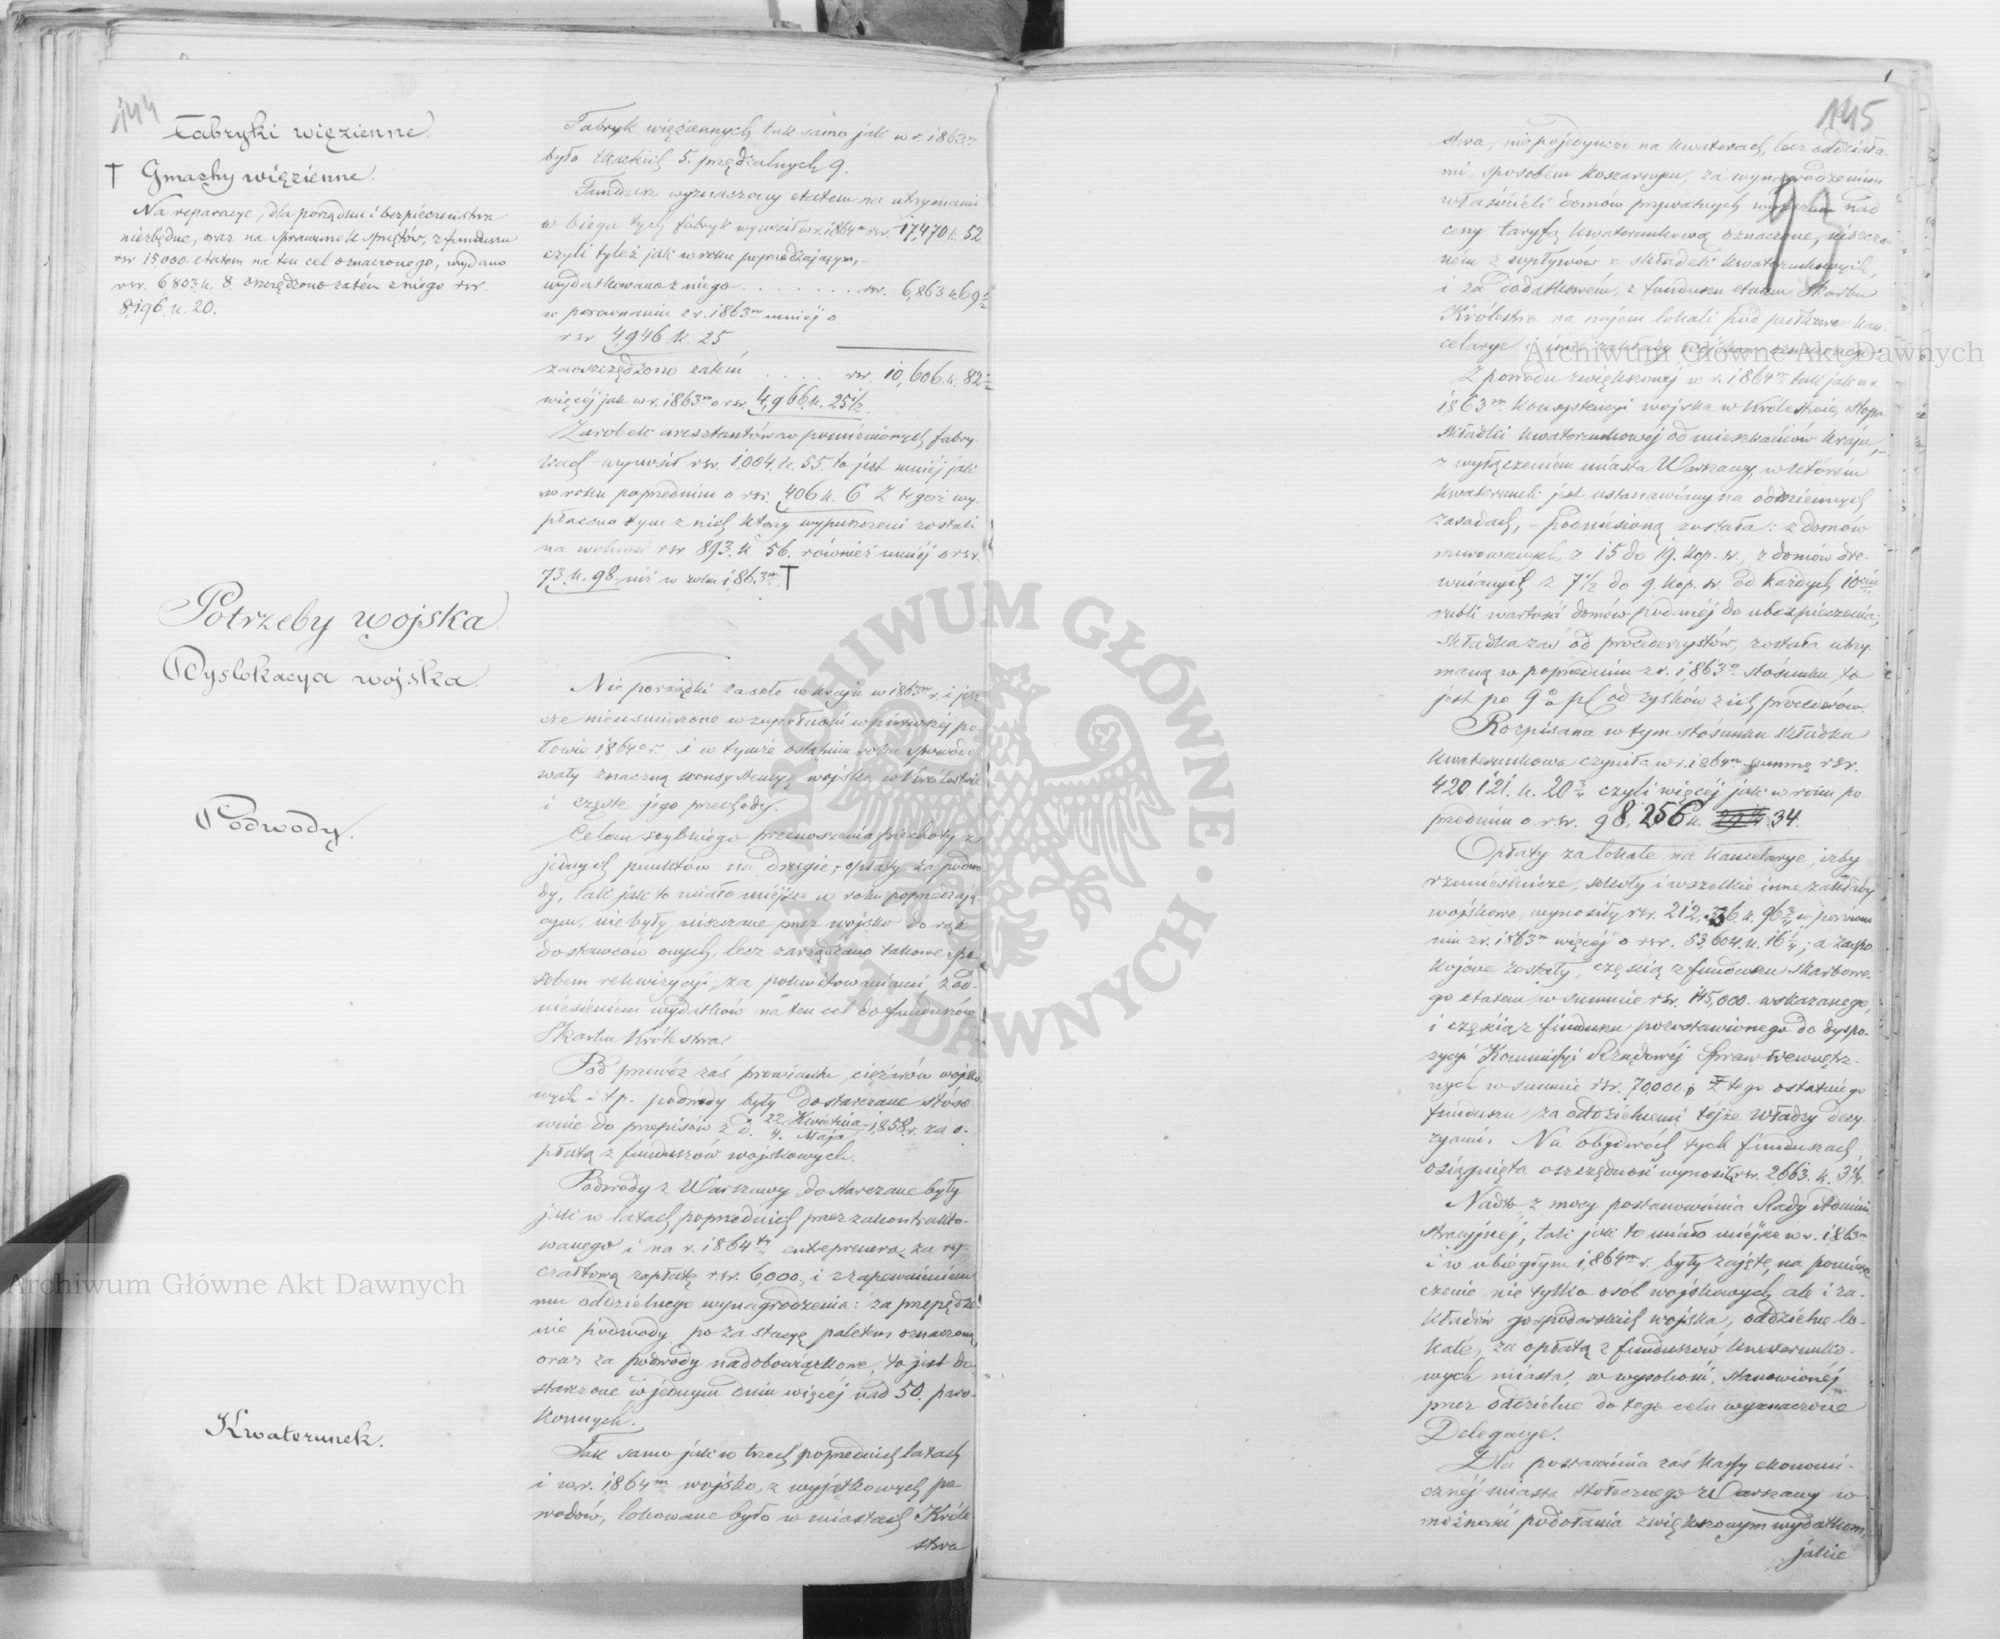 144
Fabryki więzienne.
† Gmachy więzienne.
Na reparacye, dla porządku i bezpieczeństwa
niezbędne, oraz na sprawunek sprzętów, z funduszu
rsr 15,000. etatem na ten cel oznaczonego, wydano
rsr. 6803. k. 8 oszczędzono zatém z niego rsr.
8,196. k. 20.
Potrzeby wojska.
Dyslokacya wojska.
Podwody.
Kwaterunek.
Fabryk więziennych tak samo jak w r. 1863m
było tkackich 5. przędzalnych 9.
Fundusz wyznaczony etatem na utrzymanie
w biegu tych fabryk wynosił w r. 1864m rsr. 17,470 k. 52.
czyli tyleż jak w roku poprzedzającym,–
wydatkowano z niego . . . . . . . . rsr. 6,863. k. 69½
w porównaniu z r. 1863m mniéj o
rsr. 4,946 k. 25
zaoszczędzono zatém . . . . rsr. 10,606. k. 82½
więcéj jak w r. 1863m o rsr. 4,966. k. 25½.
Zarobek aresztantów w pomienionych fabry-
kach wynosił rsr. 1,004. k. 55. to jest mniéj jak
w roku poprzednim o rsr. 406 k. 6 Z tegoż wy-
płacono tym z nich, którzy wypuszczeni zostali
na wolność rsr 893. k 56. również mniéj o rsr.
73. k. 98. niż w roku 1863m †
Nieporządki zaszłe w kraju w 1863m r. i jesz-
cze nieuśmierzone w zupełności w pierwszéj po-
łowie 1864 r. i w tymże ostatnim roku spowodo-
wały znaczną konsystencyę wojska w Królestwie
i częste jego przechody.
Celem szybkiego przenoszenia piechoty z
jednych punktów na drugie, opłaty za podwo-
dy, tak jak to miało miejsce w roku poprzedzają-
cym, nie były uiszczane przez wojsko do rąk
dostawców onych, lecz zarządzano takowe spo-
sobem rekwizycyi, za pokwitowaniami, z od-
niesieniem wydatków na ten cel do funduszów
Skarbu Królestwa.
Pod przewóz zaś prowiantu, ciężarów wojsko-
wych i t p. podwody były dostarczane stóso-
wnie do przepisów z d. 22 Kwietnia / 4. Maja 1858 r. za o-
płatą z funduszów wojskowych.
Podwody z Warszawy dostarczane były
jak w latach poprzednich przez zakontrakto-
wanego i na r. 1864ty entreprenera, za ry-
czałtową zapłatę rsr. 6,000, i z zapewnieniem
mu oddzielnego wynagrodzenia: za przepędze-
nie podwody po za stacyę biletem oznaczoną,
oraz za podwody nadobowiązkowe, to jest do-
starczone w jednym dniu więcéj nad 50. paro-
konnych.
Tak samo jak w trzech poprzednich latach
i w r. 1864m wojsko, z wyjątkowych po-
wodów, lokowane było w miastach Króle
stwa
145
stwa, nie pojedynczo na kwaterach, lecz oddziała-
mi, sposobem koszarowym, za wynagrodzeniem
właścicieli domów prywatnych wyższem nad
ceny taryfą kwaterunkową oznaczone, uiszczo-
nem z wpływów z składek kwaterunkowych,
i za dodatkowem, z funduszu etatem Skarbu
Królestwa na najem lokali pod pułkowe kan-
celarye i inne zakłady wojskowe oznaczonego.
Z powodu zwiększonéj w r. 1864m tak jak w r.
1863m konsystencyi wojska w Królestwie, stopa
składki kwaterunkowéj od mieszkańców kraju,–
z wyłączeniem miasta Warszawy, w którém
kwaterunek jest ustanawiany na oddzielnych
zasadach,– podniesioną została: z domów
murowanych z 15 do 19. kop. sr., z domów dre-
wnianych z 7½ do 9. kop. sr. od każdych 10ciu
rubli wartości domów podanéj do ubezpieczenia;
składka zaś od procederzystów, została utrzy-
maną w poprzednim z r. 1863m stósunku, to
jest po 9% od zysków z ich procederów.
Rozpisana w tym stósunku składka
kwaterunkowa czyniła w r. 1864m summę rsr.
420 121. k. 20¾ czyli więcéj jak w roku po
przednim o rsr. 98,256 k. 34.
Opłaty za lokale na kancelarye, izby
rzemieślnicze, szkoły i wszelkie inne zakłady
wojskowe, wynosiły rsr. 212, k. 96¾ w porówna
niu z r. 1863m więcéj o rsr. 53,604. k. 16¼; a zaspo-
kojone zostały, częścią z funduszu skarbowe-
go etatem w summie rsr. 145,000. wskazanego,
i częścią z funduszu pozostawionego do dyspo-
zycyi Kommissyi Rządowéj Spraw Wewnętrz-
nych w summie rsr. 70,000; z tego ostatniego
funduszu za oddzielnemi téjże Władzy decy-
zyami. Na obydwóch tych funduszach
osiągnięta oszczędność wynosiła rsr. 2,663. k. 3¼.
Nadto z mocy postanowienia Rady Admini-
stracyjnéj, tak jak to miało miéjsce w r. 1863m
i w ubiegłym 1864m r. były zajęte, na pomiesz-
czenie nie tylko osób wojskowych, ale i za-
kładów gospodarskich wojska, oddzielne lo-
kale, za opłatą z funduszów kwaterunko-
wych miasta, w wysokości, stanowionéj
przez oddzielne do tego celu wyznaczone
Delegacye.
Dla postawienia zaś kassy ekonomi-
cznéj miasta stołecznego Warszawy w
możności podołania zwiększonym wydatkom,
jakie
Archiwum Główne Akt Dawnych
Archiwum Główne Akt Dawnych
ARCHIWUM GŁÓWNE AKT DAWNYCH